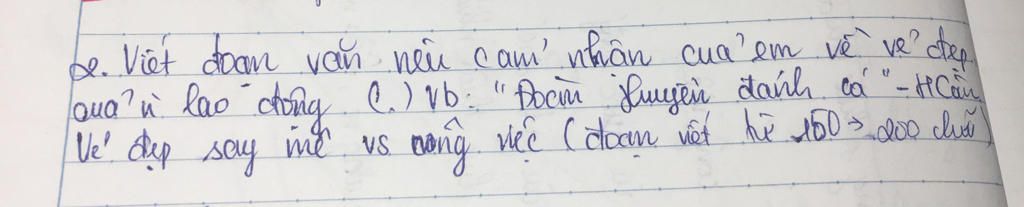 be. Viết đoạn văn nêu cảm nhận của em về vẻ đẹp
của n` lao động (.) vb: "Đoàn thuyền đánh cá" - HCận
Vẻ đẹp say mê vs công việc (đoạn viết từ 150 → 200 chữ)